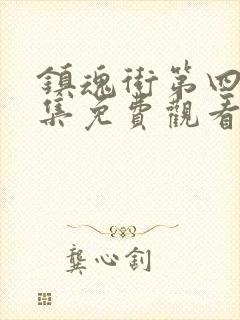 鎮魂街第四
集免費觀看
龔心釗